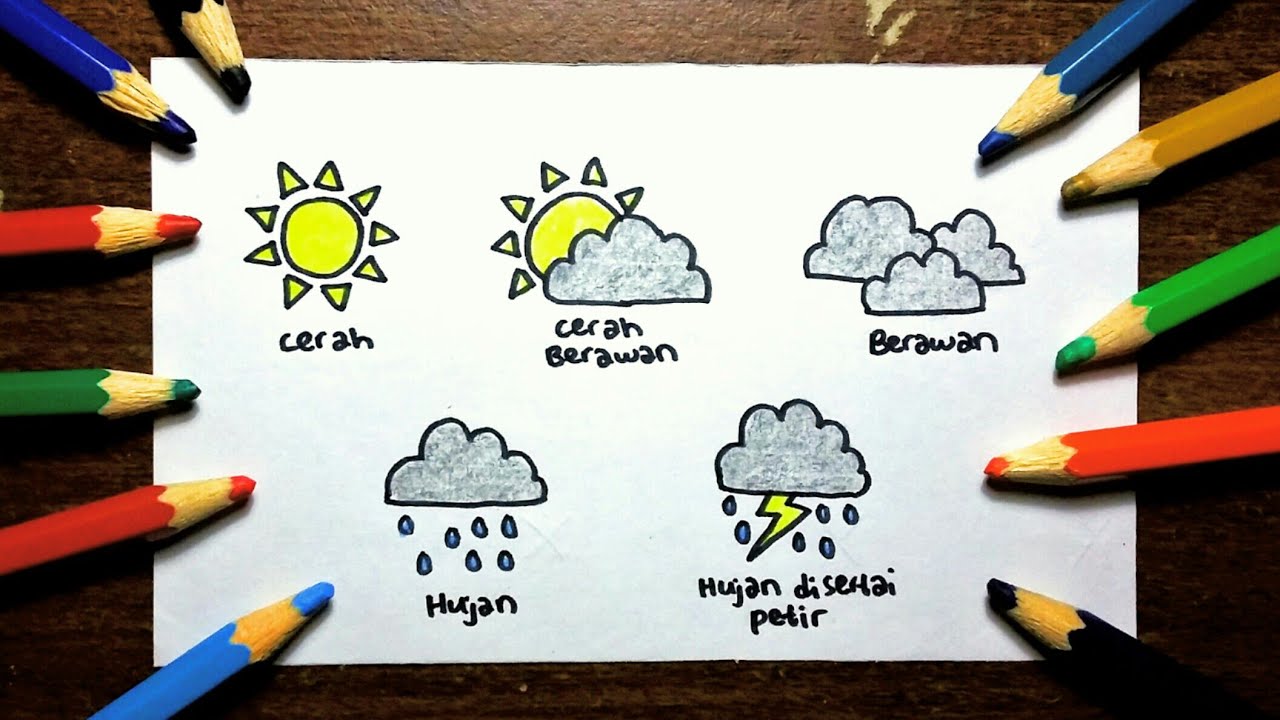 cerah
cerah
Berawan
Berawan
Hujan
Hujan disertai
petir